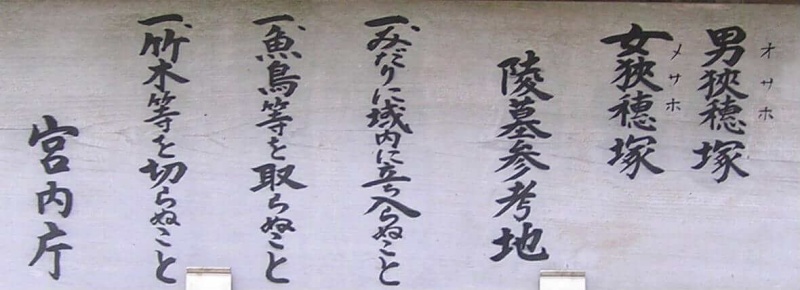 男狹穗塚
オサホ
女狹穗塚
メサホ
陵墓参考地
一、みだりに域内に立ち入らぬこと
一、魚鳥等を取らぬこと
一、竹木等を切らぬこと
宮内庁